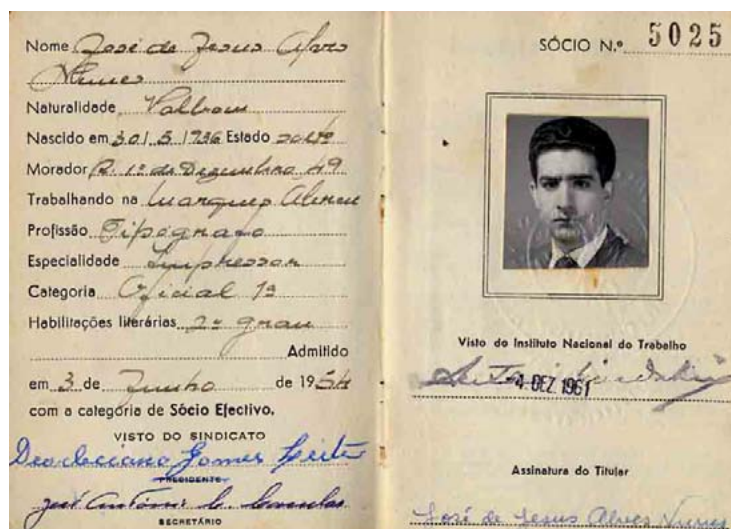 Nome José de Jesus Alves
Nunes
Naturalidade Valbom
Nascido em 30/5/1936 Estado solto
Morador R. 1º de Dezembro 49
Trabalhando na Marques Abreu
Profissão Tipografo
Especialidade Impressor
Categoria Oficial 1ª
Habilitações literárias 2º grau
Admitido
em 3 de Junho de 1954
com a categoria de Sócio Efectivo.
VISTO DO SINDICATO
Deocleciano Gomes Leite
PRESIDENTE
José António
SECRETÁRIO
SÓCIO N.º 5025
Visto do Instituto Nacional do Trabalho
4 DEZ 1961
Assinatura do Titular
José de Jesus Alves Nunes